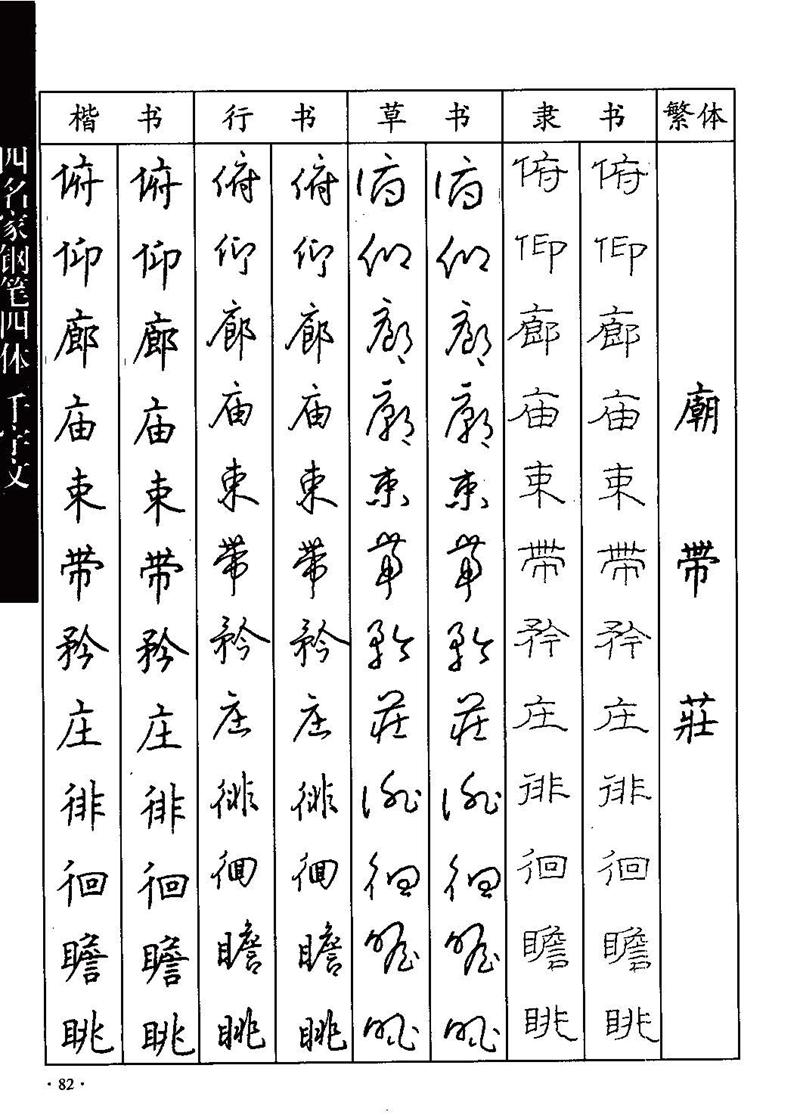 楷书 行书 草书 隶书 繁体
俯 俯 俯 俯 俯 俯 俯 俯
仰 仰 仰 仰 仰 仰 仰 仰
廊 廊 廊 廊 廊 廊 廊 廊
庙 庙 庙 庙 廟 廟 庙 庙 廟
束 束 束 束 束 束 束 束
带 带 带 带 带 带 带 带 帶
矜 矜 矜 矜 矜 矜 矜 矜
庄 庄 庄 庄 莊 莊 庄 庄 莊
徘 徘 徘 徘 徘 徘 徘 徘
徊 徊 徊 徊 徊 徊 徊 徊
瞻 瞻 瞻 瞻 瞻 瞻 瞻 瞻
眺 眺 眺 眺 眺 眺 眺 眺
四名家钢笔四体 千字文
·82·